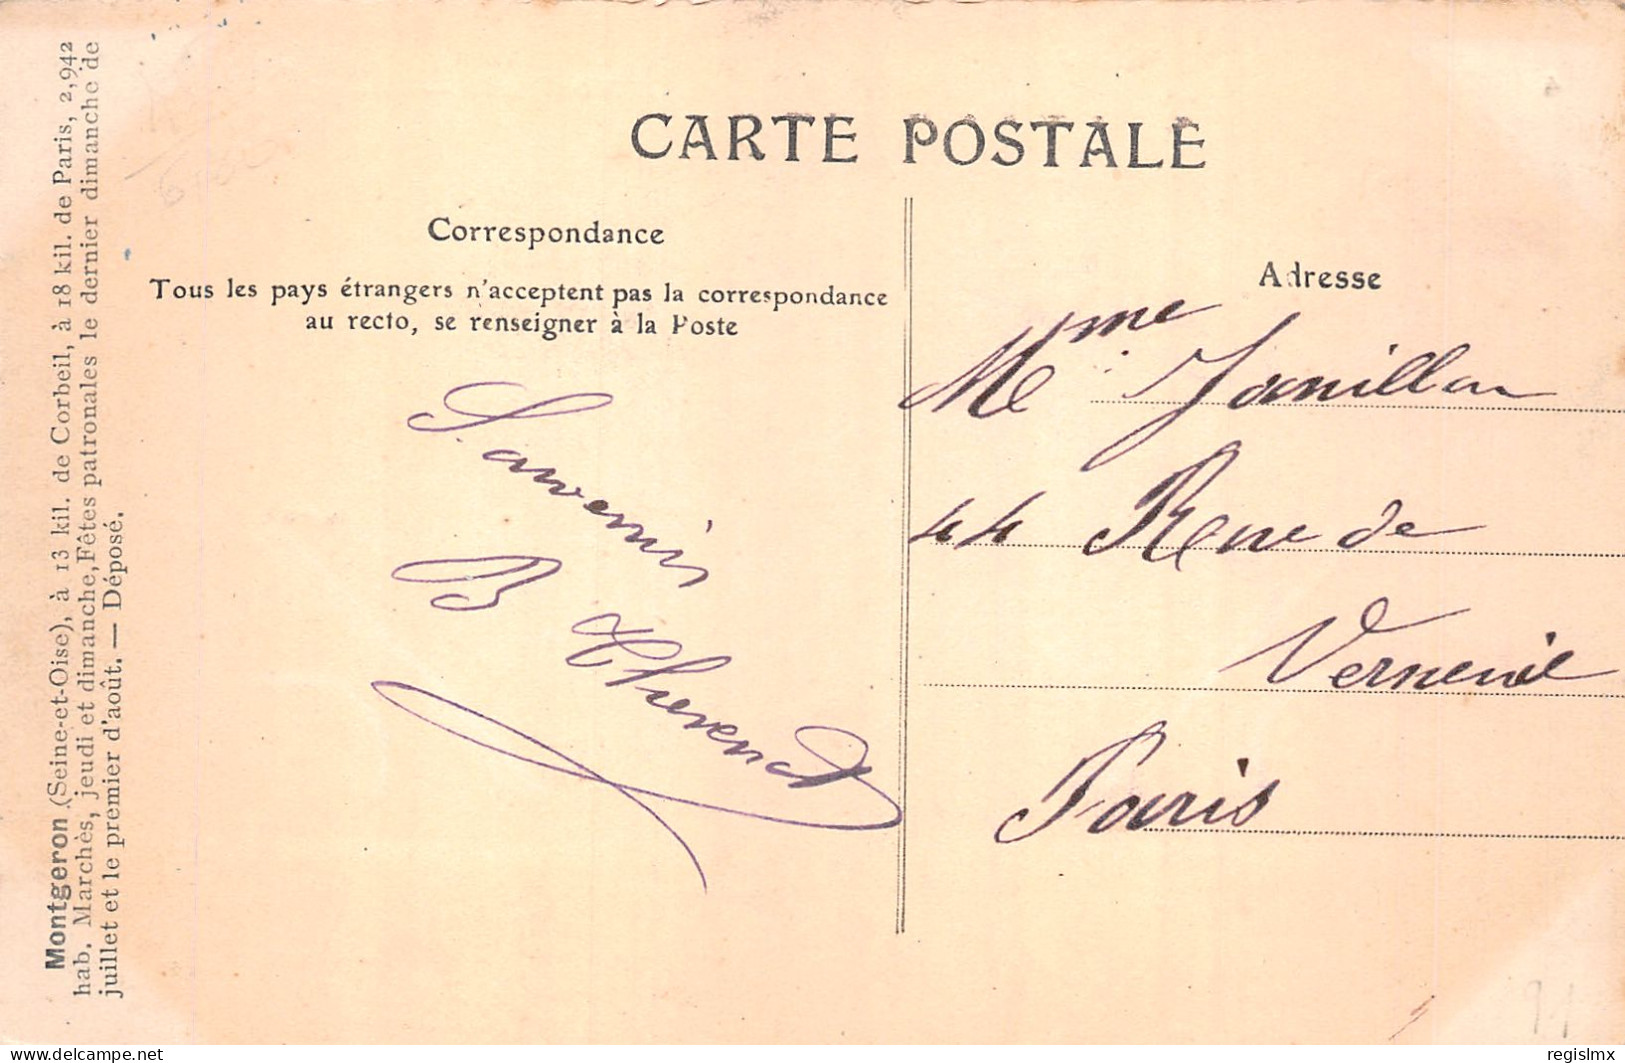 Montgeron (Seine-et-Oise), à 13 kil. de Corbeil, à 18 kil. de Paris, 2,942
hab. Marchès, jeudi et dimanche, Fêtes patronales le dernier dimanche de
juillet et le premier d'août. — Déposé.
CARTE POSTALE
Correspondance
Tous les pays étrangers n'acceptent pas la correspondance
au recto, se renseigner à la Poste
Souvenir
B
Adresse
Mme
44 Rue de
Verneuil
Paris
91
delcampe.net
regislmx